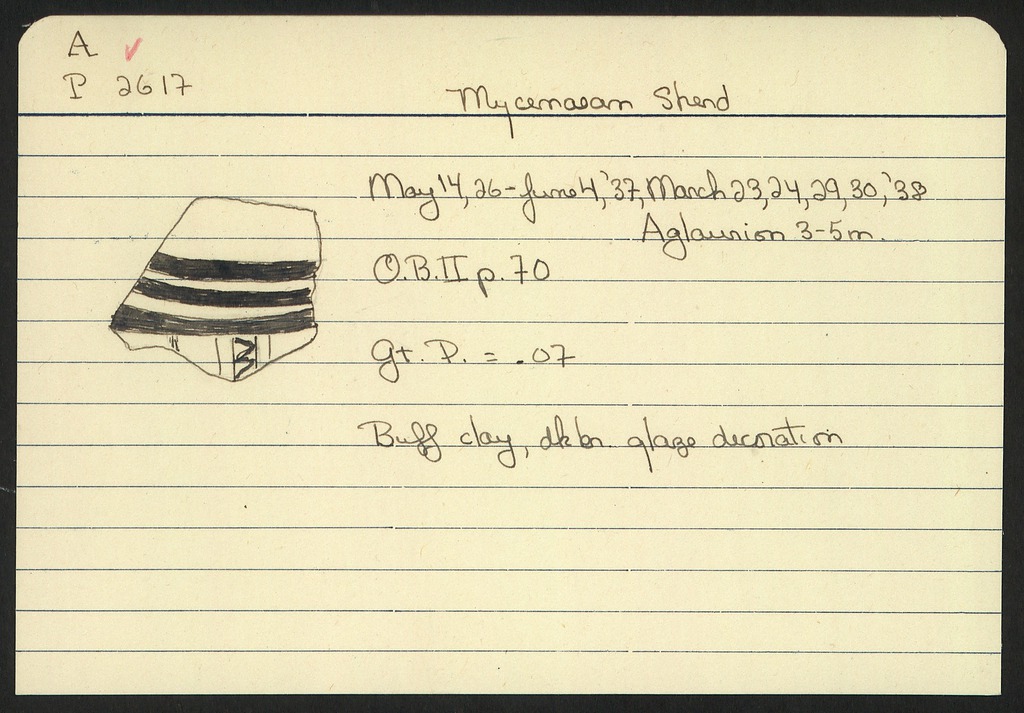 A ✓
P 2617
Mycenaean Sherd
May 14, 26-June 4, '37, March 23, 24, 29, 30, '38
Aglaurion 3-5m.
O.B.II p. 70
Gt. P. = .07
Buff clay, dk br. glaze decoration